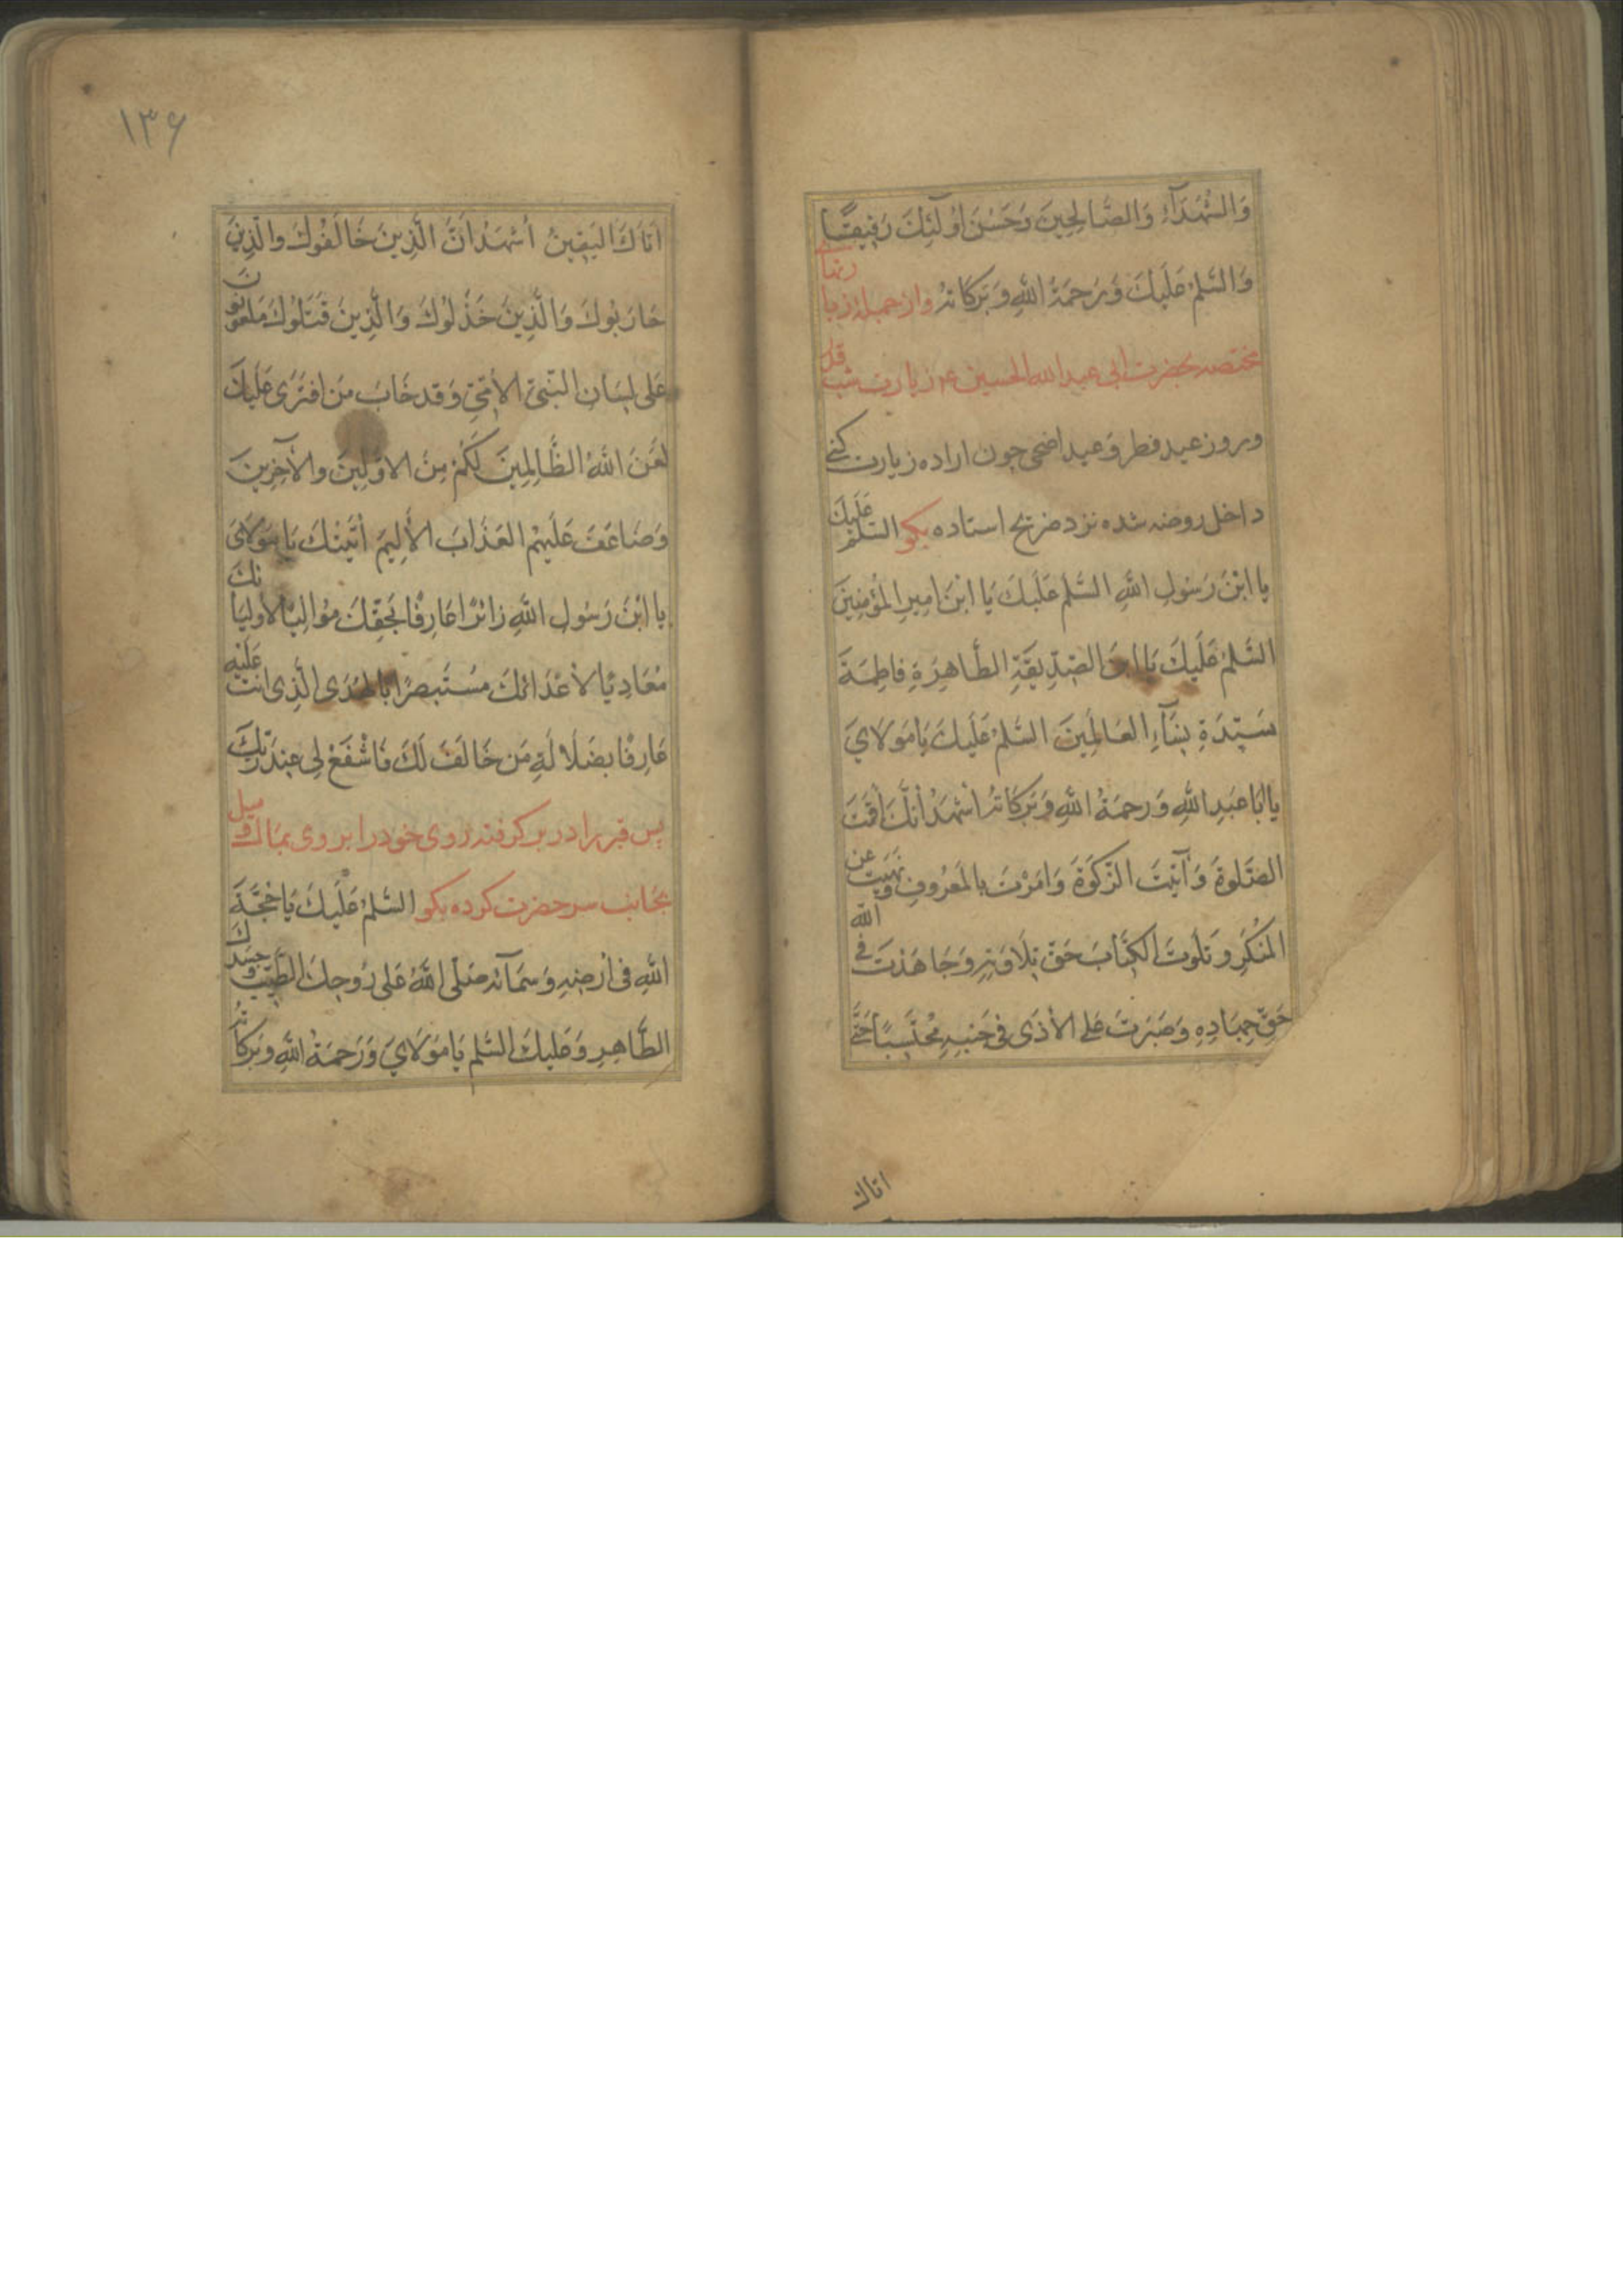 وَالشُّهَدَآءِ وَالصَّالِحِينَ وَحَسُنَ اُولَٓئِكَ رَفِيقًا
وَالسَّلمُ عَلَيكَ وَرَحمَةُ اللهِ وَبَرَكَاتُهُ وازجمله زيارتهاى
مختصه بحضرت ابى عبد الله الحسين ع زيارت شب قدر
وروز عيد فطر وعيد اضحى چون اراده زيارت كنى
داخل روضه شده نزد ضريح استاده بكو السَّلمُ عَلَيكَ
يا ابْنَ رَسُولِ اللهِ السَّلمُ عَلَيكَ يَا ابْنَ اَمِيرِ المُؤْمِنِينَ
السَّلمُ عَلَيكَ يَا ابنَ الصِّدِّيقَةِ الطَّاهِرَةِ فاطِمَةَ
سَيِّدَةِ نِسَآءِ العَالَمِينَ السَّلمُ عَلَيكَ يَا مَوْلَايَ
يا اَبَا عَبدِ اللهِ وَرَحمَةُ اللهِ وَبَرَكَاتُهُ اَشْهَدُ اَنَّكَ اَقَمْتَ
الصَّلوةَ وَآتَيْتَ الزَّكوَةَ وَاَمَرْتَ بِالمَعرُوفِ وَنَهَيْتَ عَنِ
المُنْكَرِ وَتَلَوتَ الكِتَابَ حَقَّ تِلَاوَتِهِ وَجَاهَدتَ فِى الله
حَقَّ جِهَادِهِ وَصَبَرتَ عَلى الاَذَى فى جَنبِهِ مُحتَسِبًا حَتَّى
اتاك
١٣۶
اَتَاكَ اليَقِينُ اَشْهَدُ اَنَّ الَّذِينَ خَالَفُوكَ والَّذِينَ
حَارَبُوكَ وَالَّذِينَ خَذَلُوكَ وَالَّذِينَ قَتَلُوكَ مَلعُونُونَ
عَلى لِسَانِ النَّبِيِّ الاُمِّيِّ وَقَد خَابَ مَن افتَرَى عَلَيكَ
لَعَنَ اللهُ الظَّالِمِينَ لَكُمْ مِنَ الاوَّلِينَ والآخِرِينَ
وَضَاعَفَ عَلَيهِمُ العَذَابَ الاَلِيمَ اَتَيتُكَ يَا مَوْلَاىَ
يا ابْنَ رَسُولِ اللهِ زَائرًا عَارِفًا بحَقِّكَ مُوَالِيًا لاَولِيَائكَ
مُعَادِيًا لاَعْدَائكَ مُسْتَبصِرًا بالهُدَى الَّذِى اَنتَ عَلَيْهِ
عَارِفًا بِضَلَالَةِ مَن خَالَفَ لَكَ فَاشْفَعْ لِى عِندَ رَبِّكَ
پس قبر را در بر كرفته روى خود را بر وى بمال وميل
بجانب سر حضرت كرده بكو السَّلمُ عَلَيكَ يَا حُجَّةَ
اللهِ فى اَرْضِهِ وَسَمَآئهِ صَلَّى اللهُ عَلى رُوحِكَ الطَّيِّبِ وَجَسَدِكَ
الطَّاهِرِ وَعَلَيكَ السَّلم يَا مَوْلَايَ وَرَحمَةُ اللهِ وَبَرَكَاتُهُ